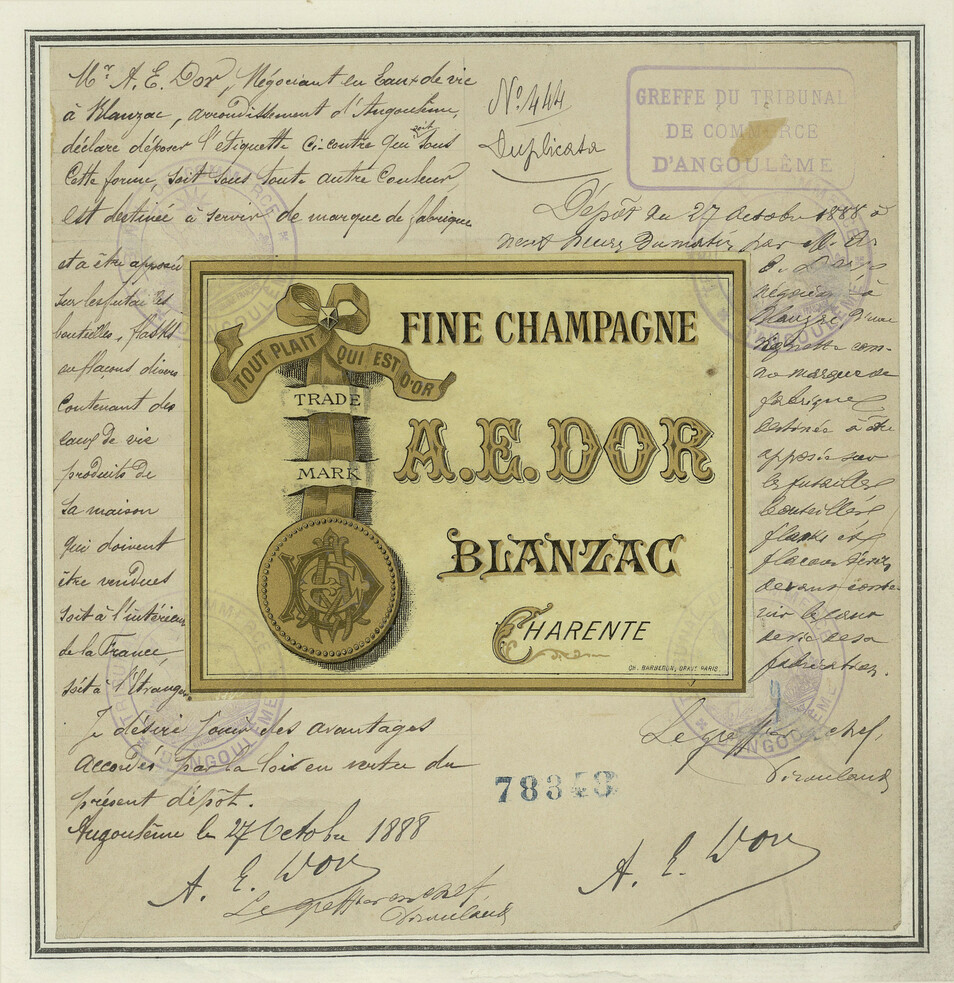 Mr A. E. Dor, Négociant en Eaux de vie
à Blanzac, arrondissement d'Angoulême,
déclare déposer l'étiquette ci-contre qui soit sous
cette forme, soit sous toute autre couleur,
est destinée à servir de marque de fabrique
et a être apposée
sur les futailles
bouteilles, flasks
ou flacons divers
contenant des
eaux de vie
produits de
sa maison
qui doivent
être vendues
soit à l'intérieur
de la France,
soit à l'Etranger
Je désire jouir des avantages
accordés par la loi en vertu du
présent dépôt.
Angoulême le 27 Octobre 1888
A. E. Dor
Le greffier en chef
No. 444
Duplicata
GREFFE DU TRIBUNAL
DE COMMERCE
D'ANGOULÊME
Dépôt du 27 octobre 1888 à
neuf heures du matin par M. A.
E. Dor
négociant à
Blanzac, d'une
vignette com-
me marque de
fabrique,
destinée à être
apposée sur
les futailles
bouteilles
flasks et
flacons divers
devant conte-
nir les eaux
de vie de sa
fabrication.
Le greffier en chef,
A. E. Dor
TOUT PLAIT QUI EST D'OR
TRADE
MARK
FINE CHAMPAGNE
A.E. DOR
BLANZAC
CHARENTE
CH. BARBERON, GRAVR PARIS.
D'ANGOULÊME